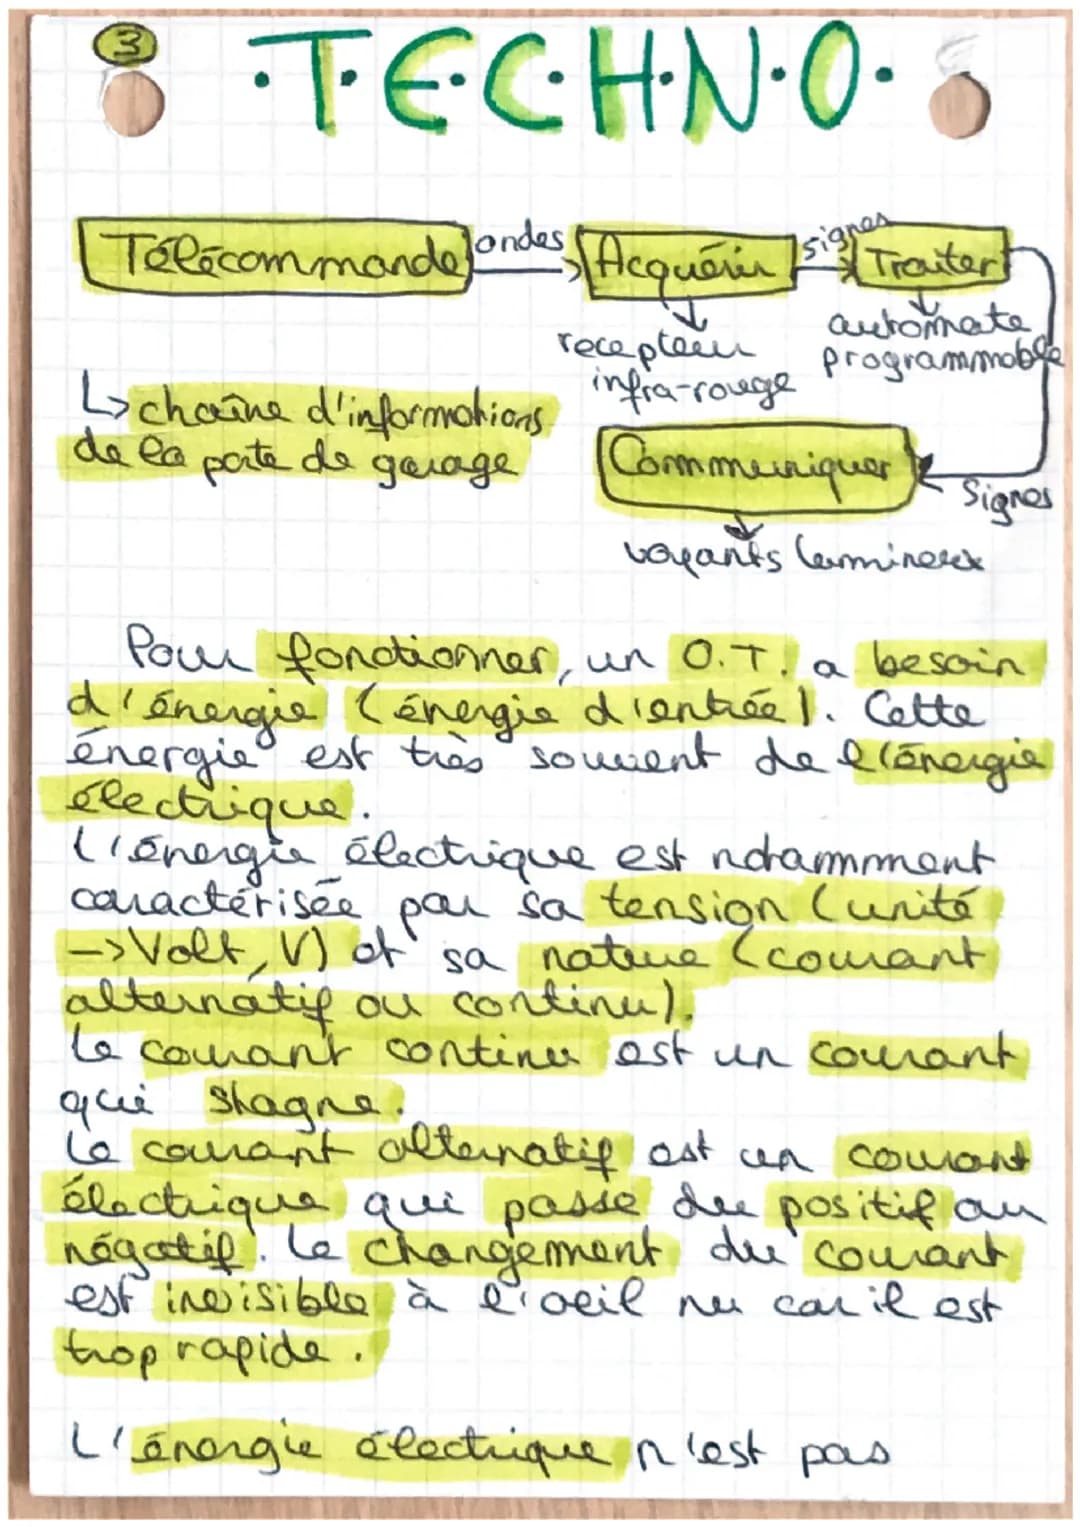 3
·T·E·C·H·N·O·
Télécommande ondes Acquérir signes Traiter
recepteur
infra-rouge
automate
programmable
↳ chaîne d'informations
de la porte de garage
Communiquer
Signes
voyants lumineux
Pour fonctionner, un O.T. a besoin
d'énergie (énergie d'entrée). Cette
énergie est très souvent de l'énergie
électrique.
L'énergie électrique est notammment
caractérisée par sa tension (unité
->Volt, V) et sa nature (courant
alternatif ou continu).
Le courant continu est un courant
qui stagne.
Le courant alternatif est un courant
électrique qui passe du positif au
négatif. Le changement du courant
est invisible à l'oeil nu car il est
trop rapide.
L'énergie électrique n'est pas